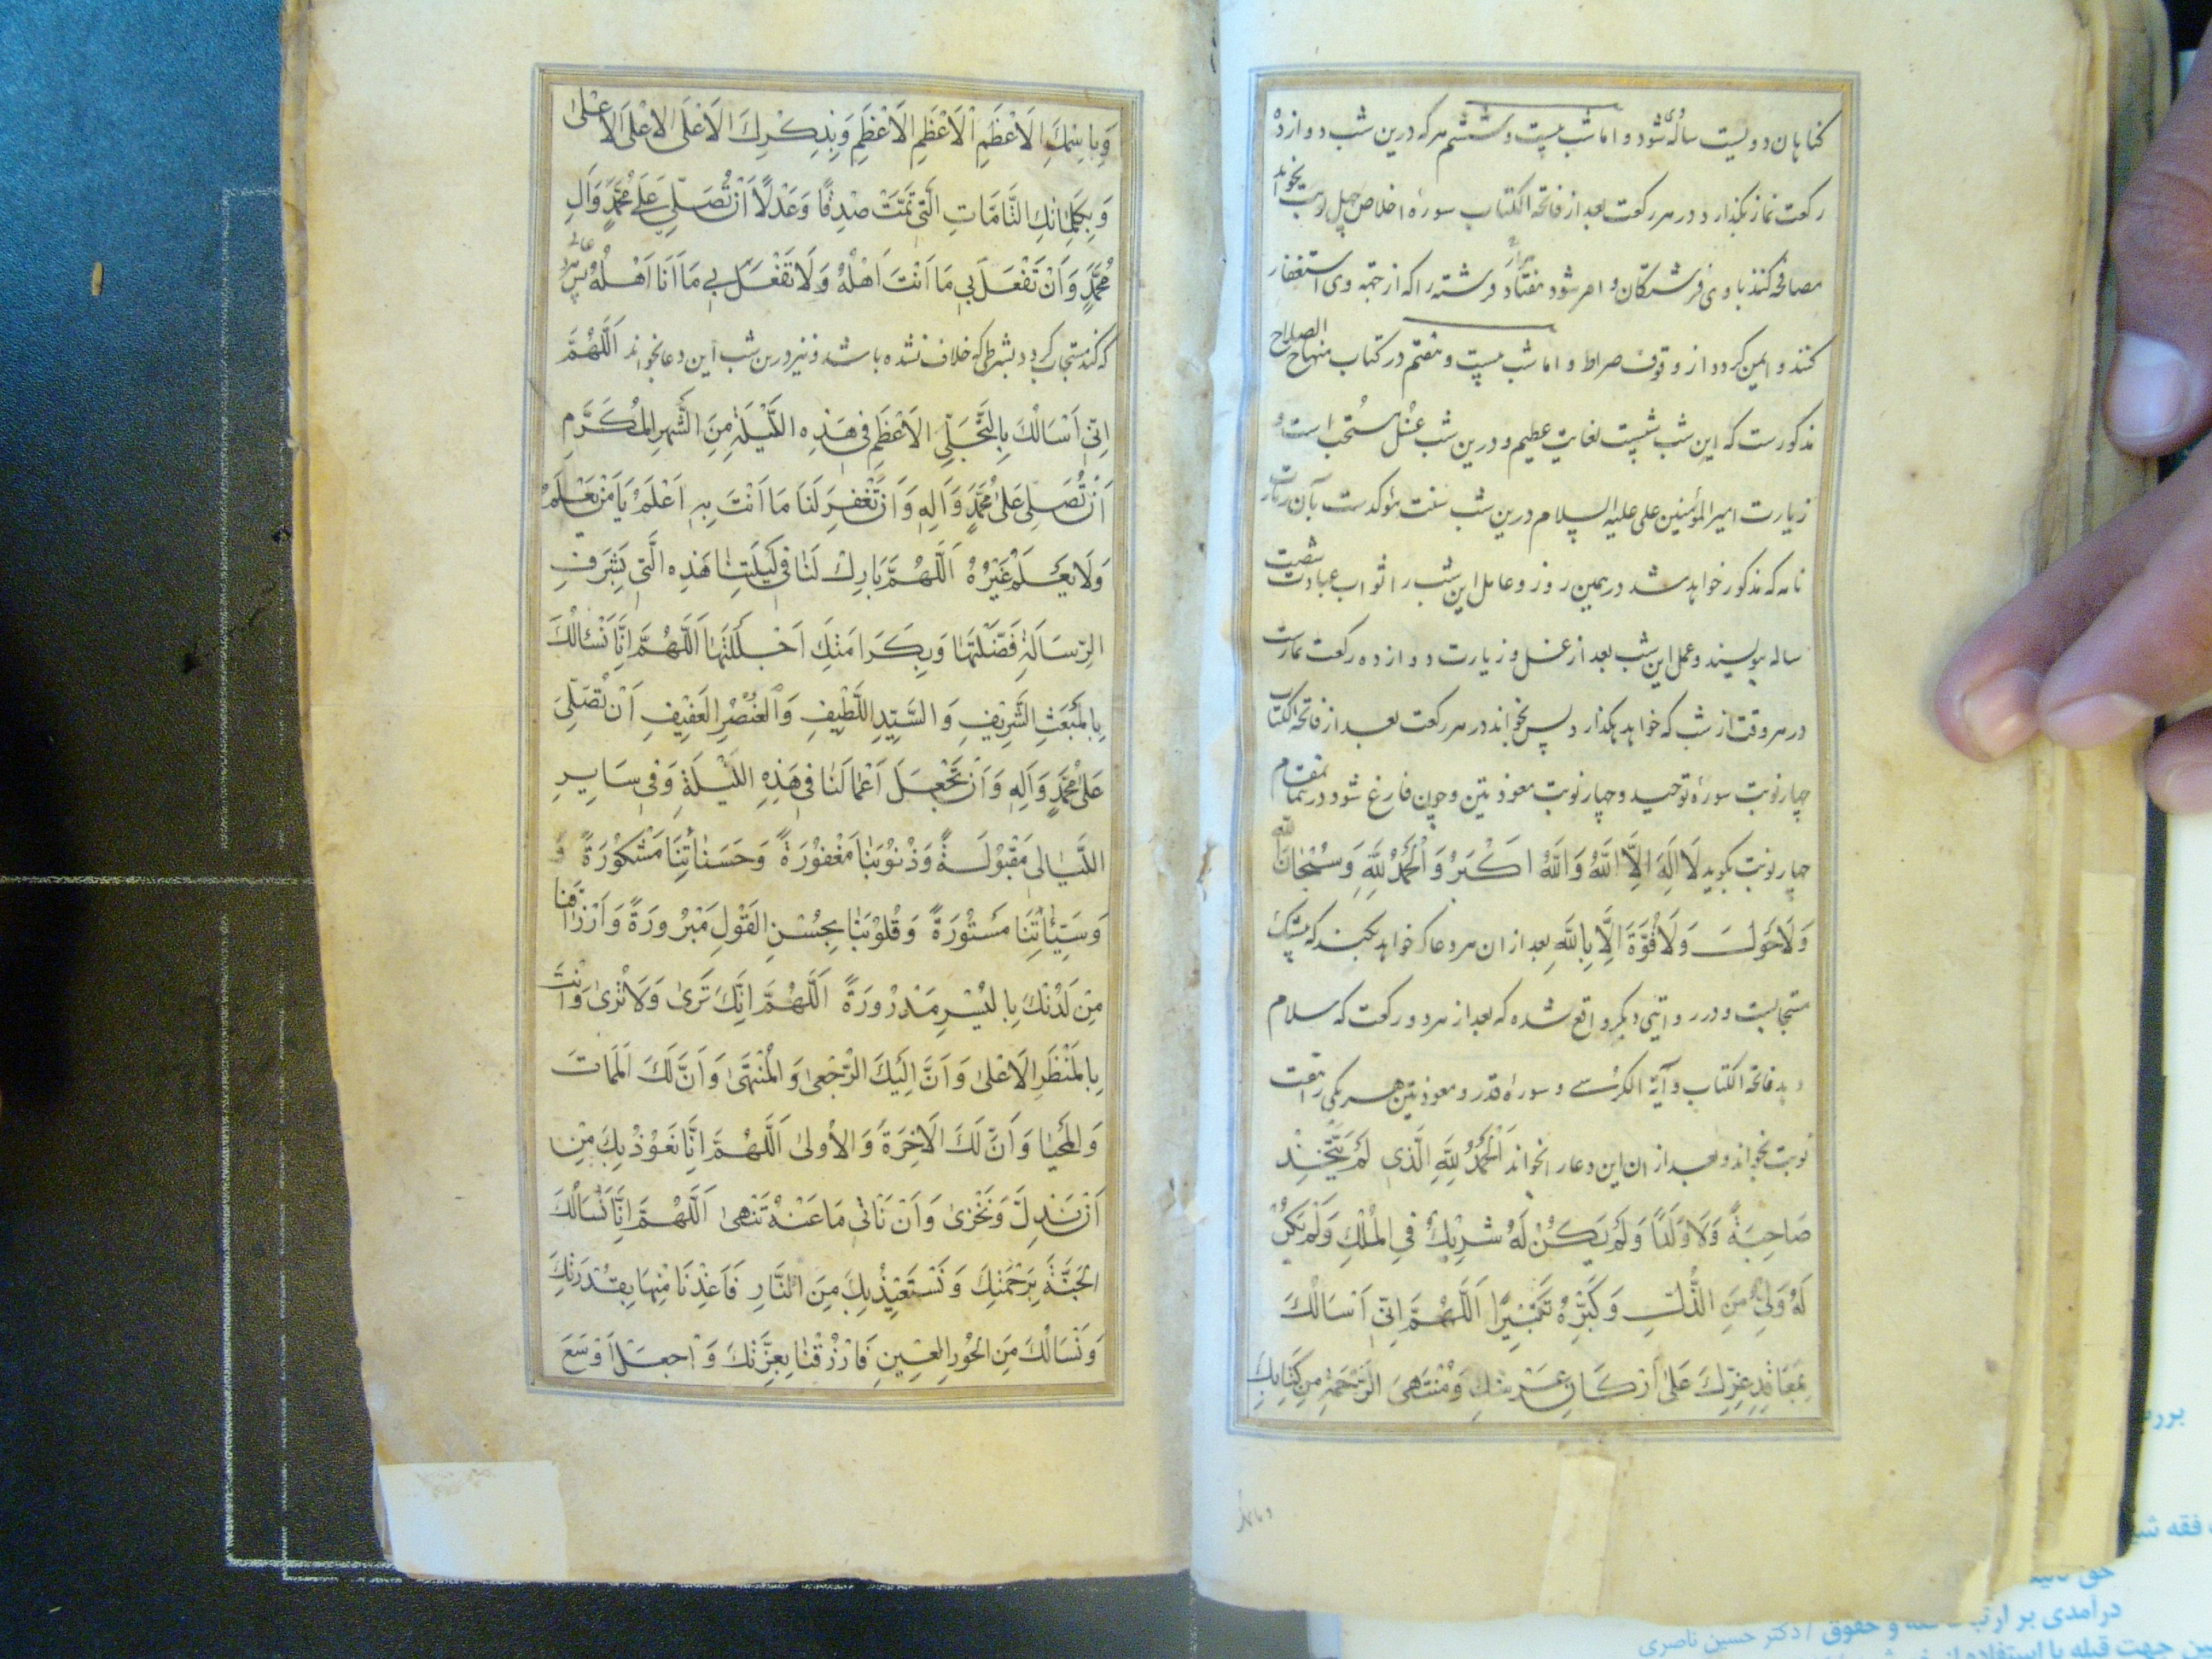 گناهان دویست ساله وی شود و اما شب بیست و ششم هر که درین شب دوازده
رکعت نماز بگذارد در هر رکعت بعد از فاتحة الکتاب سورهٔ اخلاص چهل نوبت بخواند
مصافحه کنند با وی فرشتگان و امر شود هفتاد هزار فرشته را که از جهة وی استغفار
کنند و ایمن گردد از وقوف صراط و اما شب بیست و هفتم در کتاب منهاج الصلاح
مذکورست که این شب شبیست بغایت عظیم و درین شب غسل مستحب است و
زیارت امیر المؤمنین علی علیه السلام درین شب سنت مؤکدست بآن زیارت
نامه که مذکور خواهد شد در همین روز و عامل این شب را ثواب عبادت شصت
ساله بنویسند و عمل این شب بعد از غسل و زیارت دوازده رکعت نمازست
در هر وقت از شب که خواهد بگذارد پس بخواند در هر رکعت بعد از فاتحة الکتاب
چهار نوبت سورهٔ توحید و چهار نوبت معوذتین و چون فارغ شود در همان مقام
چهار نوبت بگوید لَا اِلٰهَ اِلَّا اللّٰهُ وَاللّٰهُ اَكْبَرُ وَالْحَمْدُ لِلّٰهِ وَسُبْحَانَ اللّٰهِ
وَلَا حَوْلَ وَلَا قُوَّةَ اِلَّا بِاللّٰهِ بعد از ان هر دعا که خواهد بکند که بیشک
مستجابست و در روایتی دیگر واقع شده که بعد از هر دو رکعت که سلام
دهد فاتحة الکتاب و آیة الکرسے و سورهٔ قدر و معوذتین هر یکی را هفت
نوبت بخواند و بعد از ان این دعا را بخواند اَلْحَمْدُ لِلّٰهِ الَّذِي لَمْ يَتَّخِذْ
صَاحِبَةً وَلَا وَلَدًا وَلَمْ يَكُنْ لَهُ شَرِيْكٌ فِي الْمُلْكِ وَلَمْ يَكُنْ
لَهُ وَلِيٌّ مِنَ الذُّلِّ وَكَبِّرْهُ تَكْبِيْرًا اَللّٰهُمَّ اِنِّي اَسْاَلُكَ
بِمَعَاقِدِ عِزِّكَ عَلٰى اَرْكَانِ عَرْشِكَ وَمُنْتَهَى الرَّحْمَةِ مِنْ كِتَابِكَ
وباسمك
وَبِاسْمِكَ الْاَعْظَمِ الْاَعْظَمِ الْاَعْظَمِ وَبِذِكْرِكَ الْاَعْلَى الْاَعْلَى الْاَعْلٰى
وَبِكَلِمَاتِكَ التَّامَّاتِ الَّتِي تَمَّتْ صِدْقًا وَعَدْلًا اَنْ تُصَلِّيَ عَلٰى مُحَمَّدٍ وَآلِ
مُحَمَّدٍ وَاَنْ تَفْعَلَ بِي مَا اَنْتَ اَهْلُهُ وَلَا تَفْعَلْ بِي مَا اَنَا اَهْلُهُ پس هر دعائے
که کند مستجاب گردد بشرطی که خلاف نشده باشد و نیز درین شب این دعا بخواند اَللّٰهُمَّ
اِنِّي اَسْاَلُكَ بِالتَّجَلِّي الْاَعْظَمِ فِي هٰذِهِ اللَّيْلَةِ مِنَ الشَّهْرِ الْمُكَرَّمِ
اَنْ تُصَلِّيَ عَلٰى مُحَمَّدٍ وَآلِهِ وَاَنْ تَغْفِرَ لَنَا مَا اَنْتَ بِهِ اَعْلَمُ يَا مَنْ يَعْلَمُ
وَلَا يَعْلَمُ غَيْرُهُ اَللّٰهُمَّ بَارِكْ لَنَا فِي لَيْلَتِنَا هٰذِهِ الَّتِي بِشَرَفِ
الرِّسَالَةِ فَضَّلْتَهَا وَبِكَرَامَتِكَ اَجْلَلْتَهَا اَللّٰهُمَّ اِنَّا نَسْئَالُكَ
بِالْمَبْعَثِ الشَّرِيْفِ وَالسَّيِّدِ اللَّطِيْفِ وَالْعُنْصُرِ الْعَفِيْفِ اَنْ تُصَلِّيَ
عَلٰى مُحَمَّدٍ وَآلِهِ وَاَنْ تَجْعَلَ اَعْمَالَنَا فِي هٰذِهِ اللَّيْلَةِ وَفِي سَايِرِ
اللَّيَالِي مَقْبُوْلَةً وَذُنُوْبَنَا مَغْفُوْرَةً وَحَسَنَاتِنَا مَشْكُوْرَةً
وَسَيِّئَاتِنَا مَسْتُوْرَةً وَقُلُوْبَنَا بِحُسْنِ الْقَوْلِ مَبْرُوْرَةً وَاَرْزَاقَنَا
مِنْ لَدُنْكَ بِالْيُسْرِ مَدْرُوْرَةً اَللّٰهُمَّ اِنَّكَ تَرٰى وَلَا تُرٰى وَاَنْتَ
بِالْمَنْظَرِ الْاَعْلٰى وَاَنَّ اِلَيْكَ الرُّجْعٰى وَالْمُنْتَهٰى وَاَنَّ لَكَ الْمَمَاتَ
وَالْمَحْيَا وَاَنَّ لَكَ الْآخِرَةَ وَالْاُولٰى اَللّٰهُمَّ اِنَّا نَعُوْذُ بِكَ مِنْ
اَنْ نَذِلَّ وَنَخْزٰى وَاَنْ نَاْتِيَ مَا عَنْهُ تَنْهٰى اَللّٰهُمَّ اِنَّا نَسْاَلُكَ
الْجَنَّةَ بِرَحْمَتِكَ وَنَسْتَعِيْذُ بِكَ مِنَ النَّارِ فَاَعِذْنَا مِنْهَا بِقُدْرَتِكَ
وَنَسْاَلُكَ مِنَ الْحُوْرِ الْعِيْنِ فَارْزُقْنَا بِعِزَّتِكَ وَاجْعَلْ اَوْسَعَ
درآمدی بر ارتباط فقه و حقوق / دکتر حسین ناصری